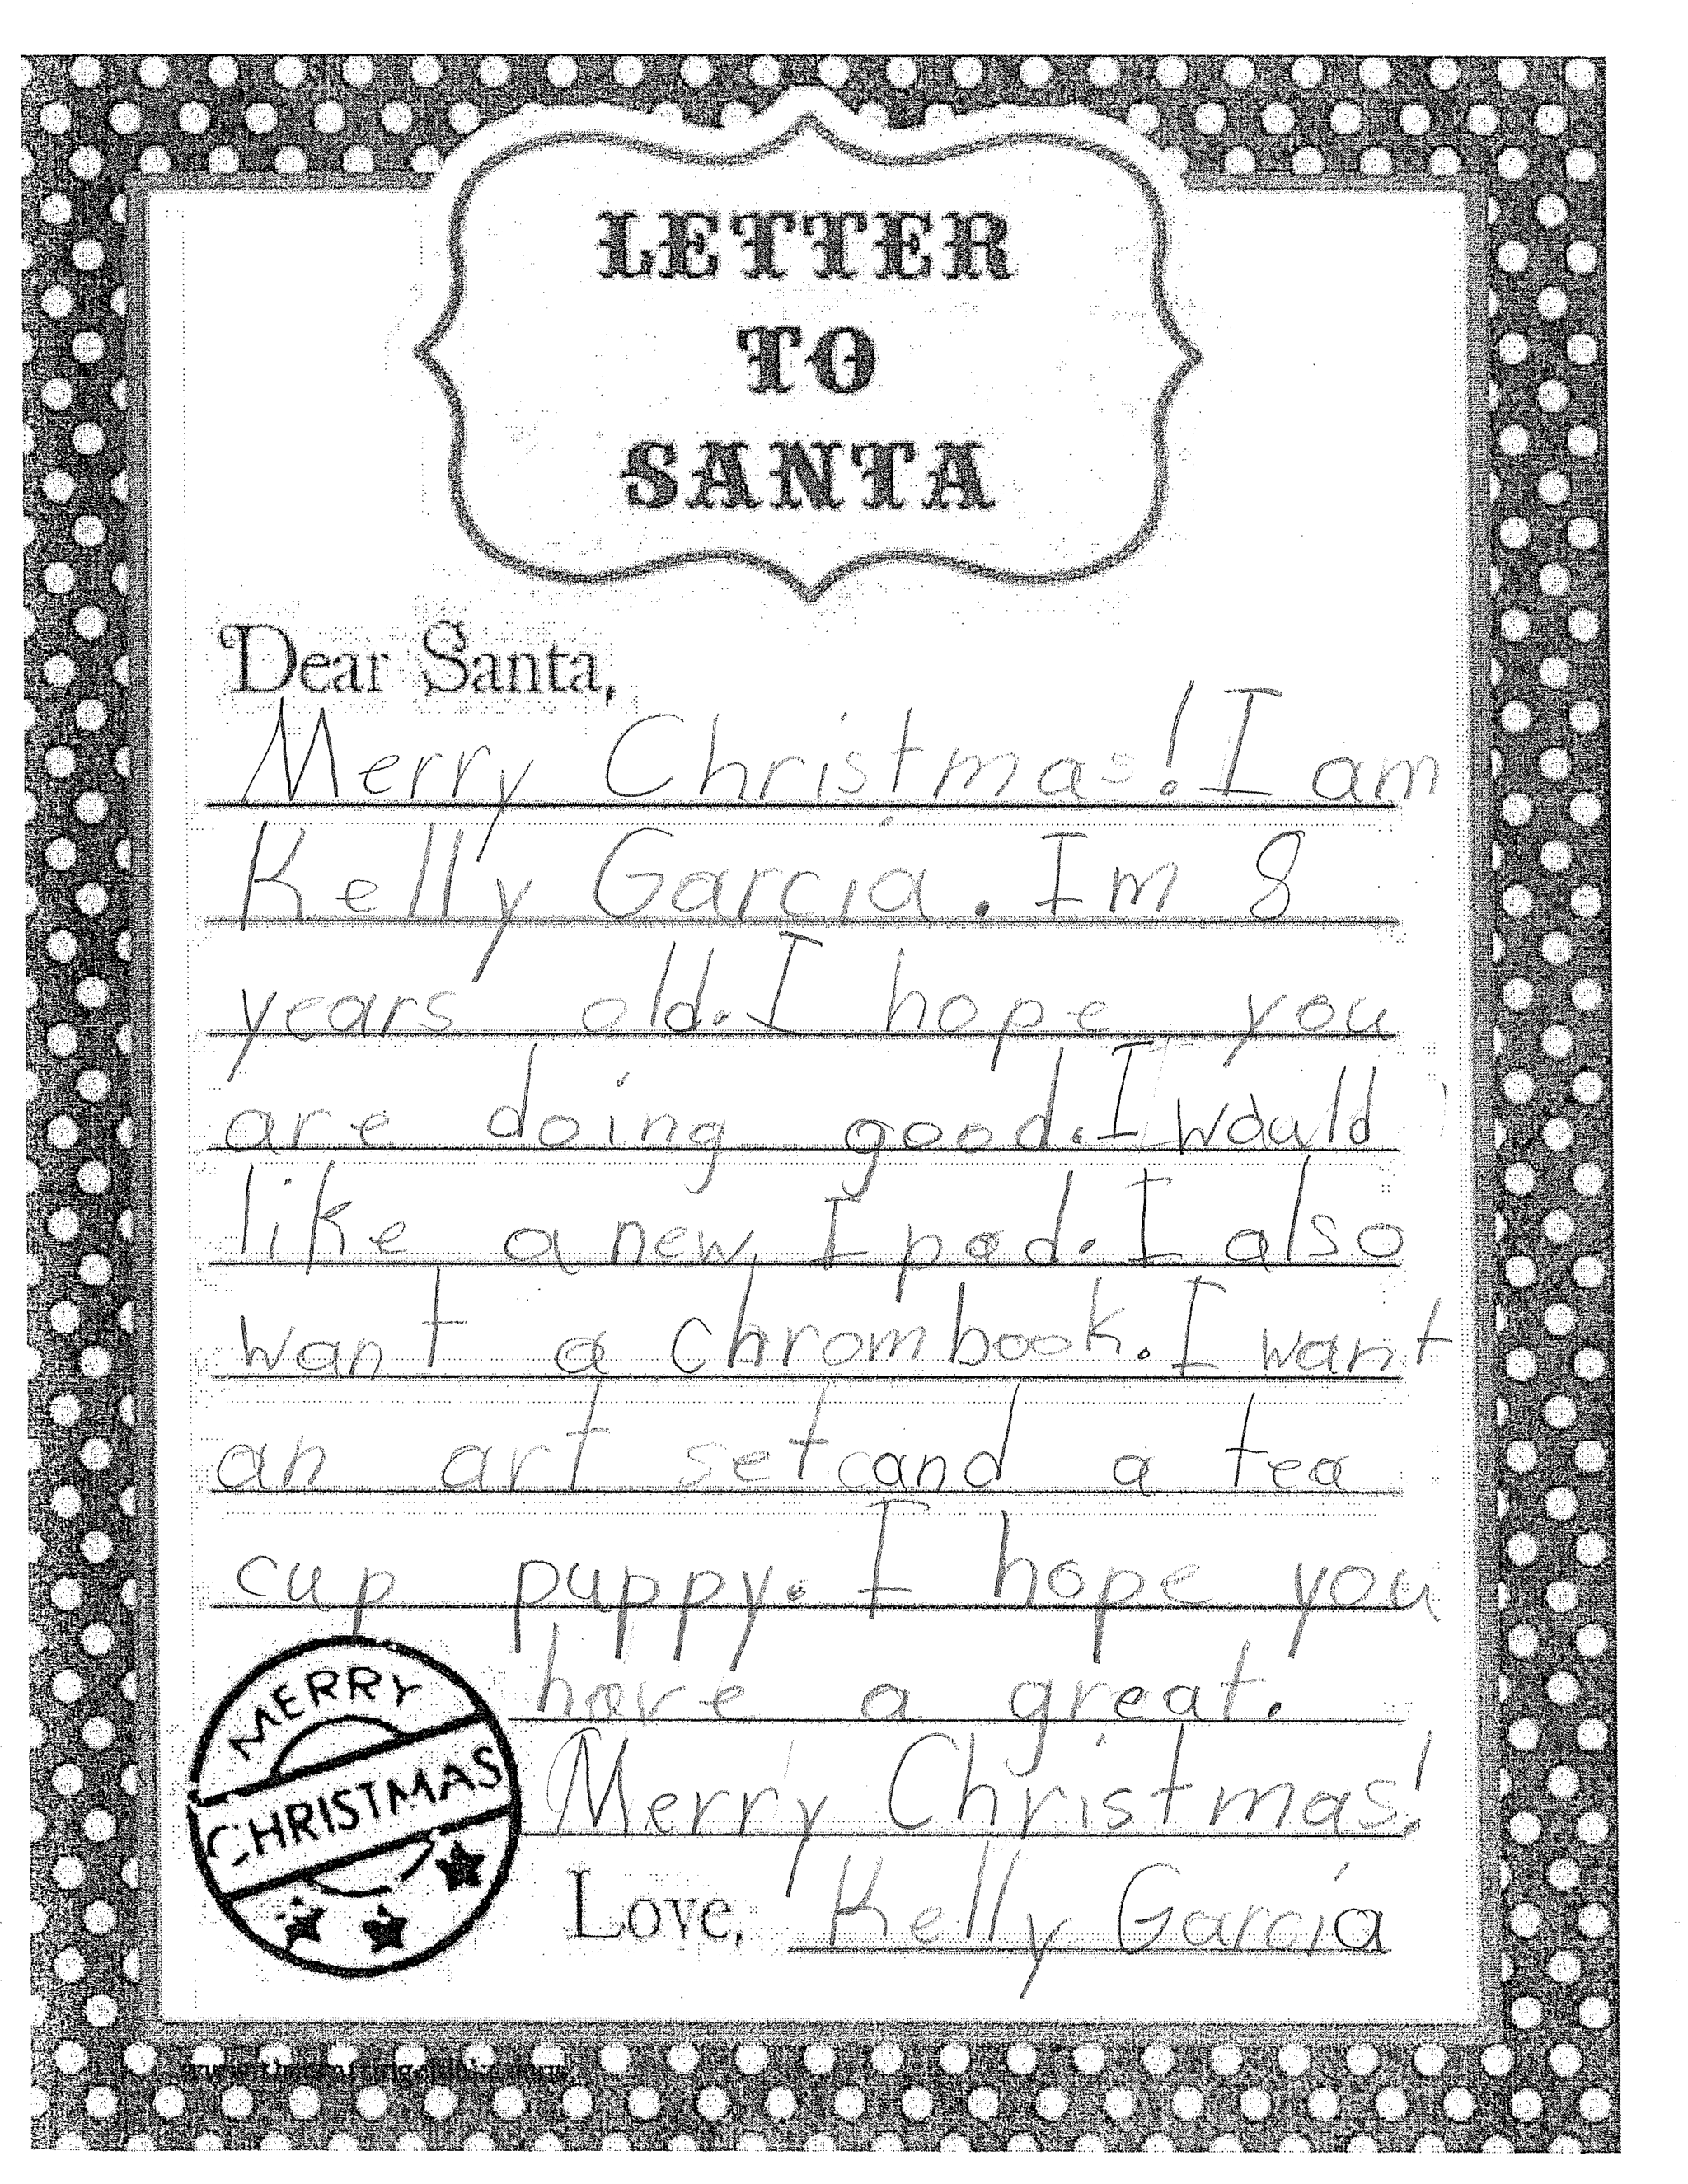 LETTER
TO
SANTA
Dear Santa,
Merry Christmas! I am
Kelly Garcia. Im 8
years old. I hope you
are doing good. I would
like a new I pad. I also
want a chrombook. I want
an art set and a tea
cup puppy. I hope you
have a great.
Merry Christmas!
Love, Kelly Garcia
MERRY
CHRISTMAS